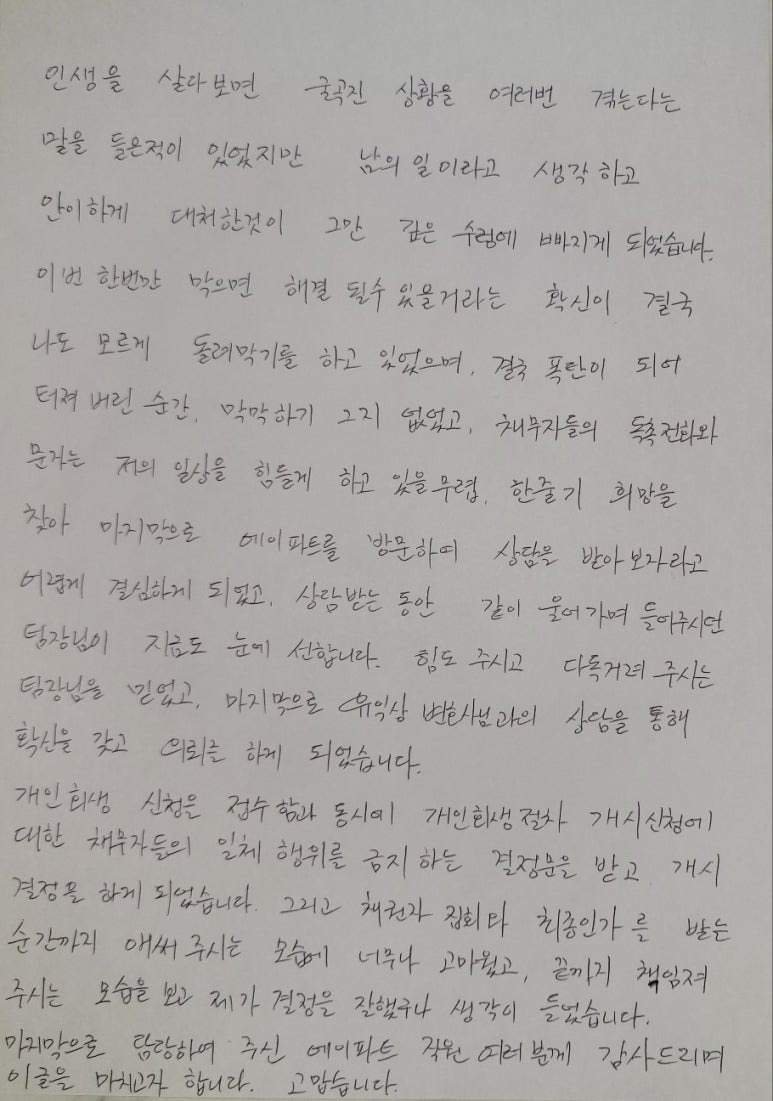 인생을 살다보면 굴곡진 상황을 여러번 겪는다는
말을 들은적이 있었지만 남의 일이라고 생각하고
안이하게 대처한것이 그만 깊은 수렁에 빠지게 되었습니다.
이번 한번만 막으면 해결 될수 있을거라는 확신이 결국
나도 모르게 돌려막기를 하고 있었으며, 결국 폭탄이 되어
터져 버린 순간, 막막하기 그지 없었고, 채무자들의 독촉전화와
문자는 저의 일상을 힘들게 하고 있을무렵, 한줄기 희망을
찾아 마지막으로 에이파트를 방문하여 상담을 받아보자라고
어렵게 결심하게 되었고, 상담받는 동안 같이 울어가며 들어주시던
팀장님이 지금도 눈에 선합니다. 힘도 주시고 다독거려 주시는
팀장님을 믿었고, 마지막으로 유익상 변호사님과의 상담을 통해
확신을 갖고 의뢰를 하게 되었습니다.
개인회생 신청을 접수함과 동시에 개인회생절차 개시신청에
대한 채무자들의 일체 행위를 금지하는 결정문을 받고, 개시
결정을 하게 되었습니다. 그리고 채권자 집회와 최종인가를 받는
순간까지 애써 주시는 모습에 너무나 고마웠고, 끝까지 책임져
주시는 모습을 보고 제가 결정을 잘했구나 생각이 들었습니다.
마지막으로 담당하여 주신 에이파트 직원 여러분께 감사드리며
이글을 마치고자 합니다. 고맙습니다.